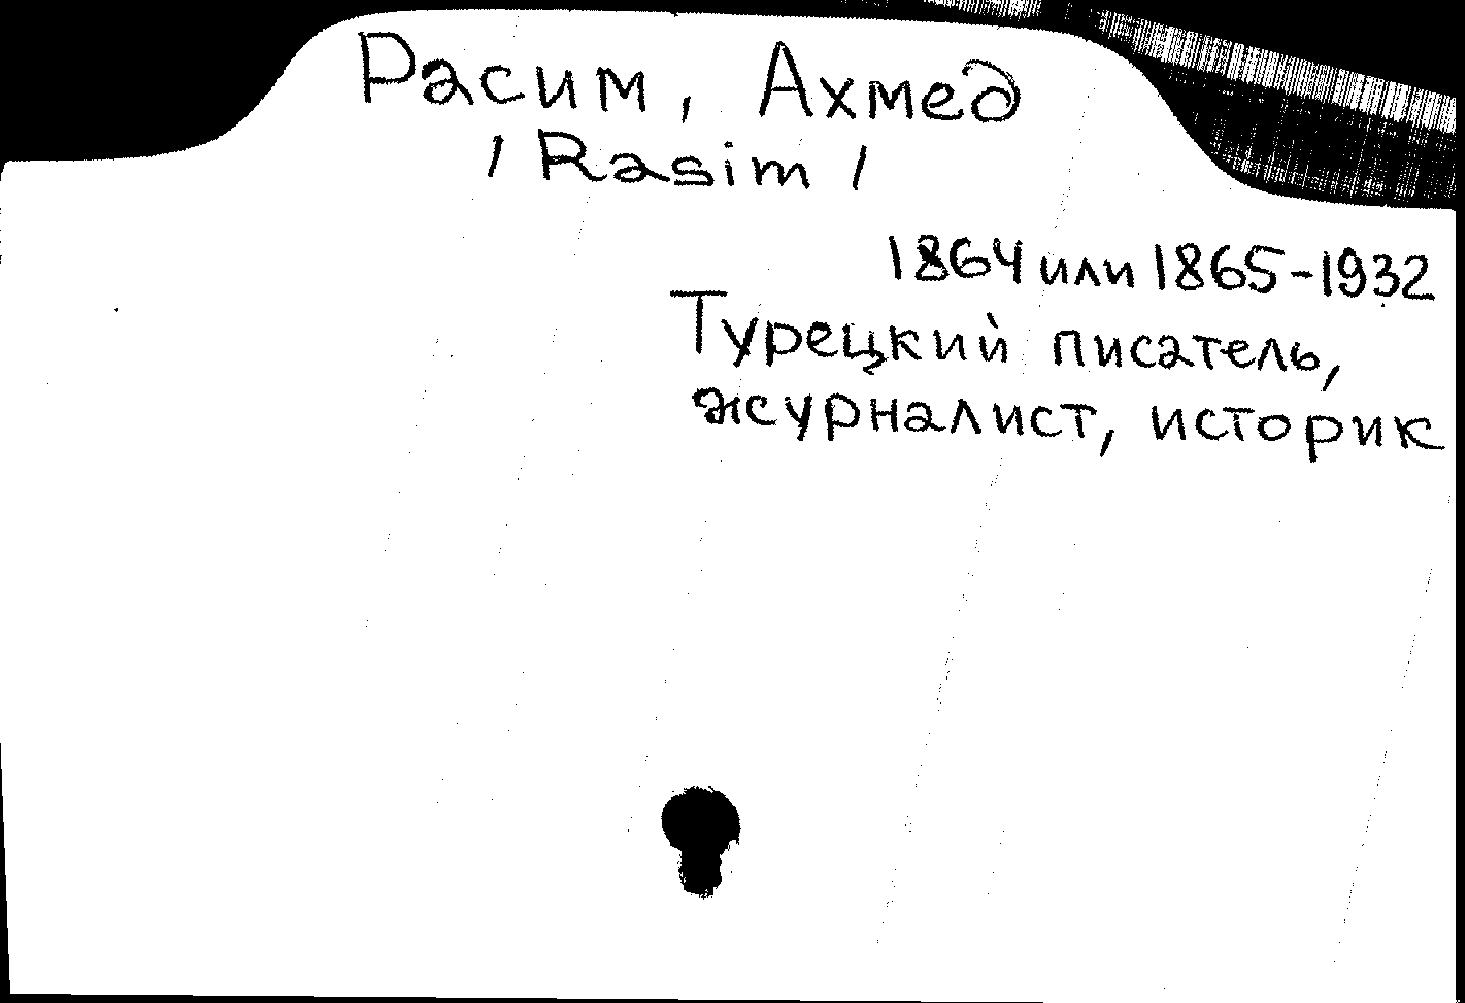 Расим, Ахмед
/ Rasim /
1864 или 1865-1932
Турецкий писатель,
журналист, историк